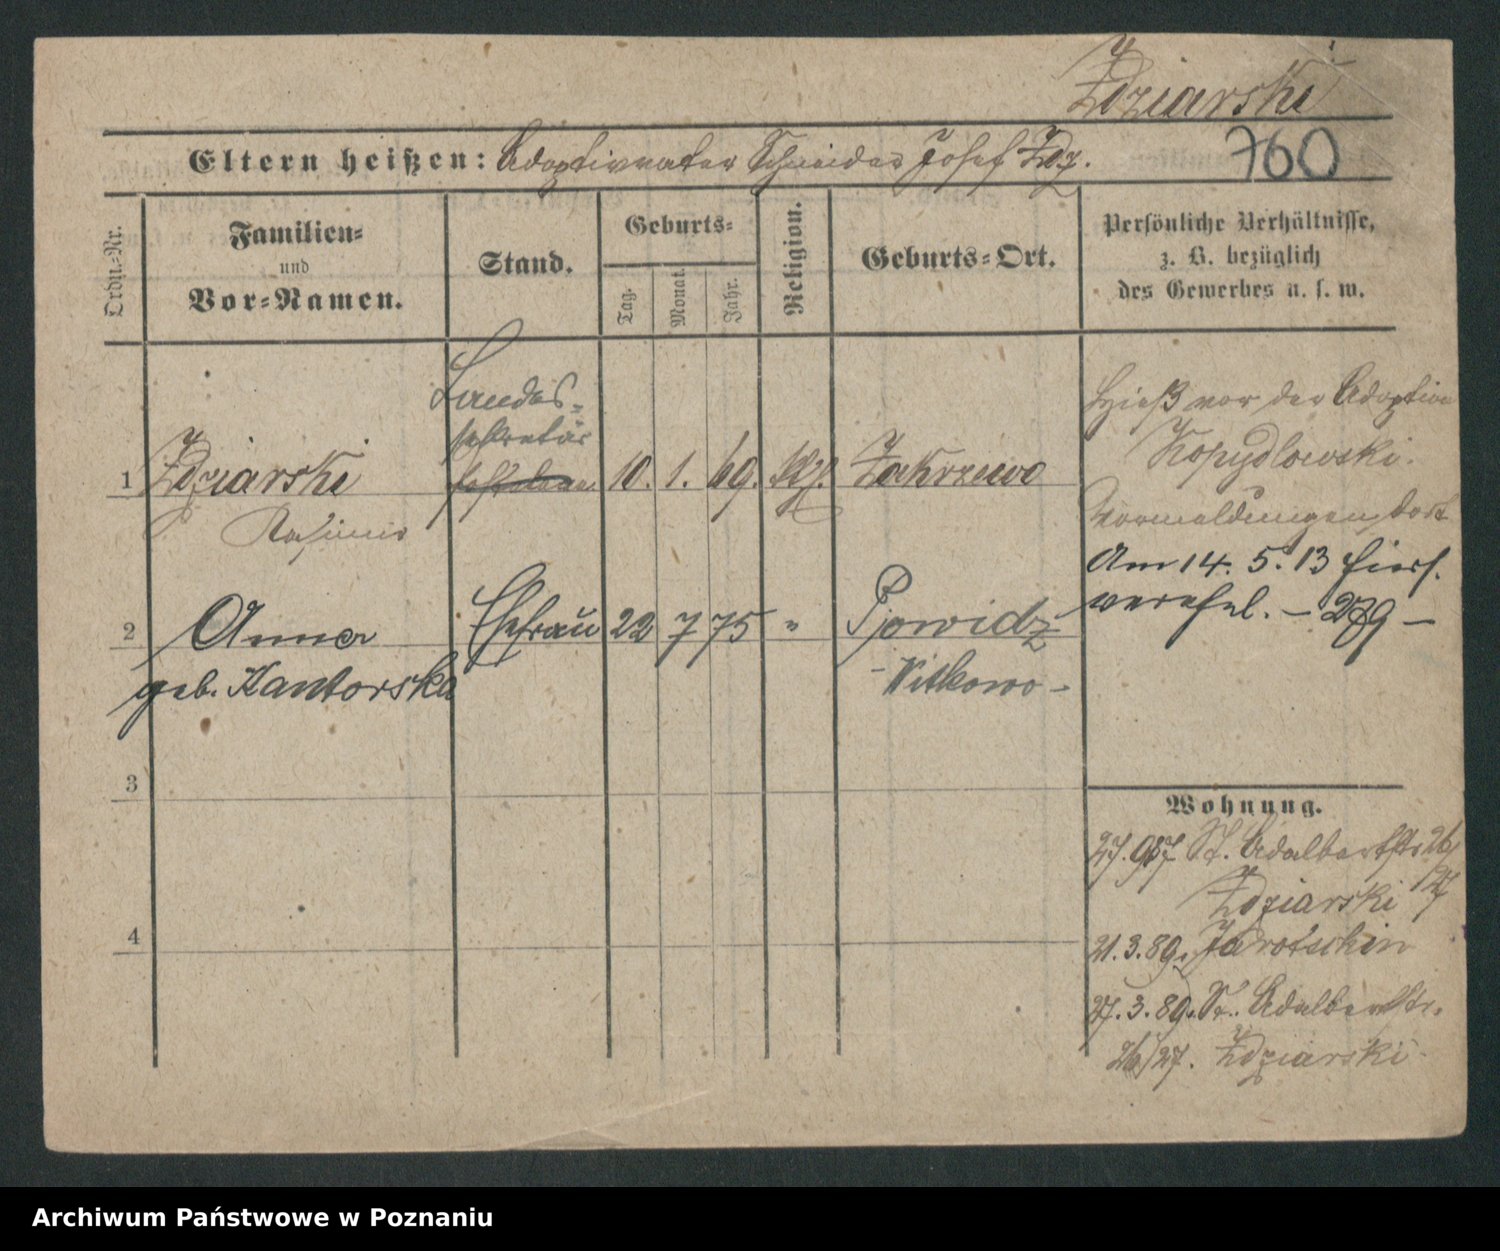 Żdziarski
760
Eltern heißen: Adoptivvater Schneider Josef Żdz.
Ordn.-Nr.
Familien-
und
Vor-Namen.
Stand.
Geburts-
Tag.
Monat.
Jahr.
Religion.
Geburts-Ort.
Persönliche Verhältnisse,
z. B. bezüglich
des Gewerbes u. s. w.
Landes-
sekretär
1 Żdziarski 10. 1. 69. kth. Zakrzewo
Kasimir
Hieß vor der Adoption
Kopydlowski.
Vormeldungen dort
Am 14. 5. 13 hiers.
verehel. – 279 –
2 Anna Ehefrau 22 7 75 " Powidz
geb. Kantorska - Witkowo -
3
4
Wohnung.
27. 9 87 St. Adalbertstr 26/
27
Żdziarski
21. 3. 89. Jarotschin
27. 3. 89. St. Adalbertstr.
26/27. Żdziarski
Archiwum Państwowe w Poznaniu